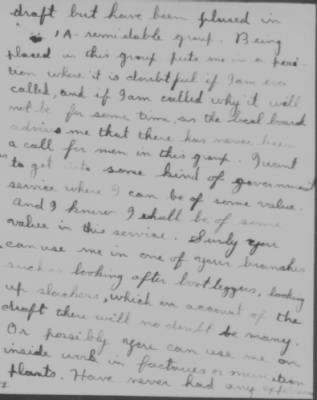 draft but have been placed in
1 A- remidable group. Being
placed in this group puts me in a posi-
tion where it is doubtful if I am ever
called, and if I am called why it will
not be for some time, as the local board
advises me that there has never been
a call for men in this group. I want
to get into some kind of government
service where I can be of some value.
And I know I shall be of some
value in this service. Surly you
can use me in one of your branches
such as looking after bootleggers, looking
up slackers, which on account of the
draft there will no doubt be many.
Or possibly you can use me on
inside work in factories or munition
plants. Have never had any